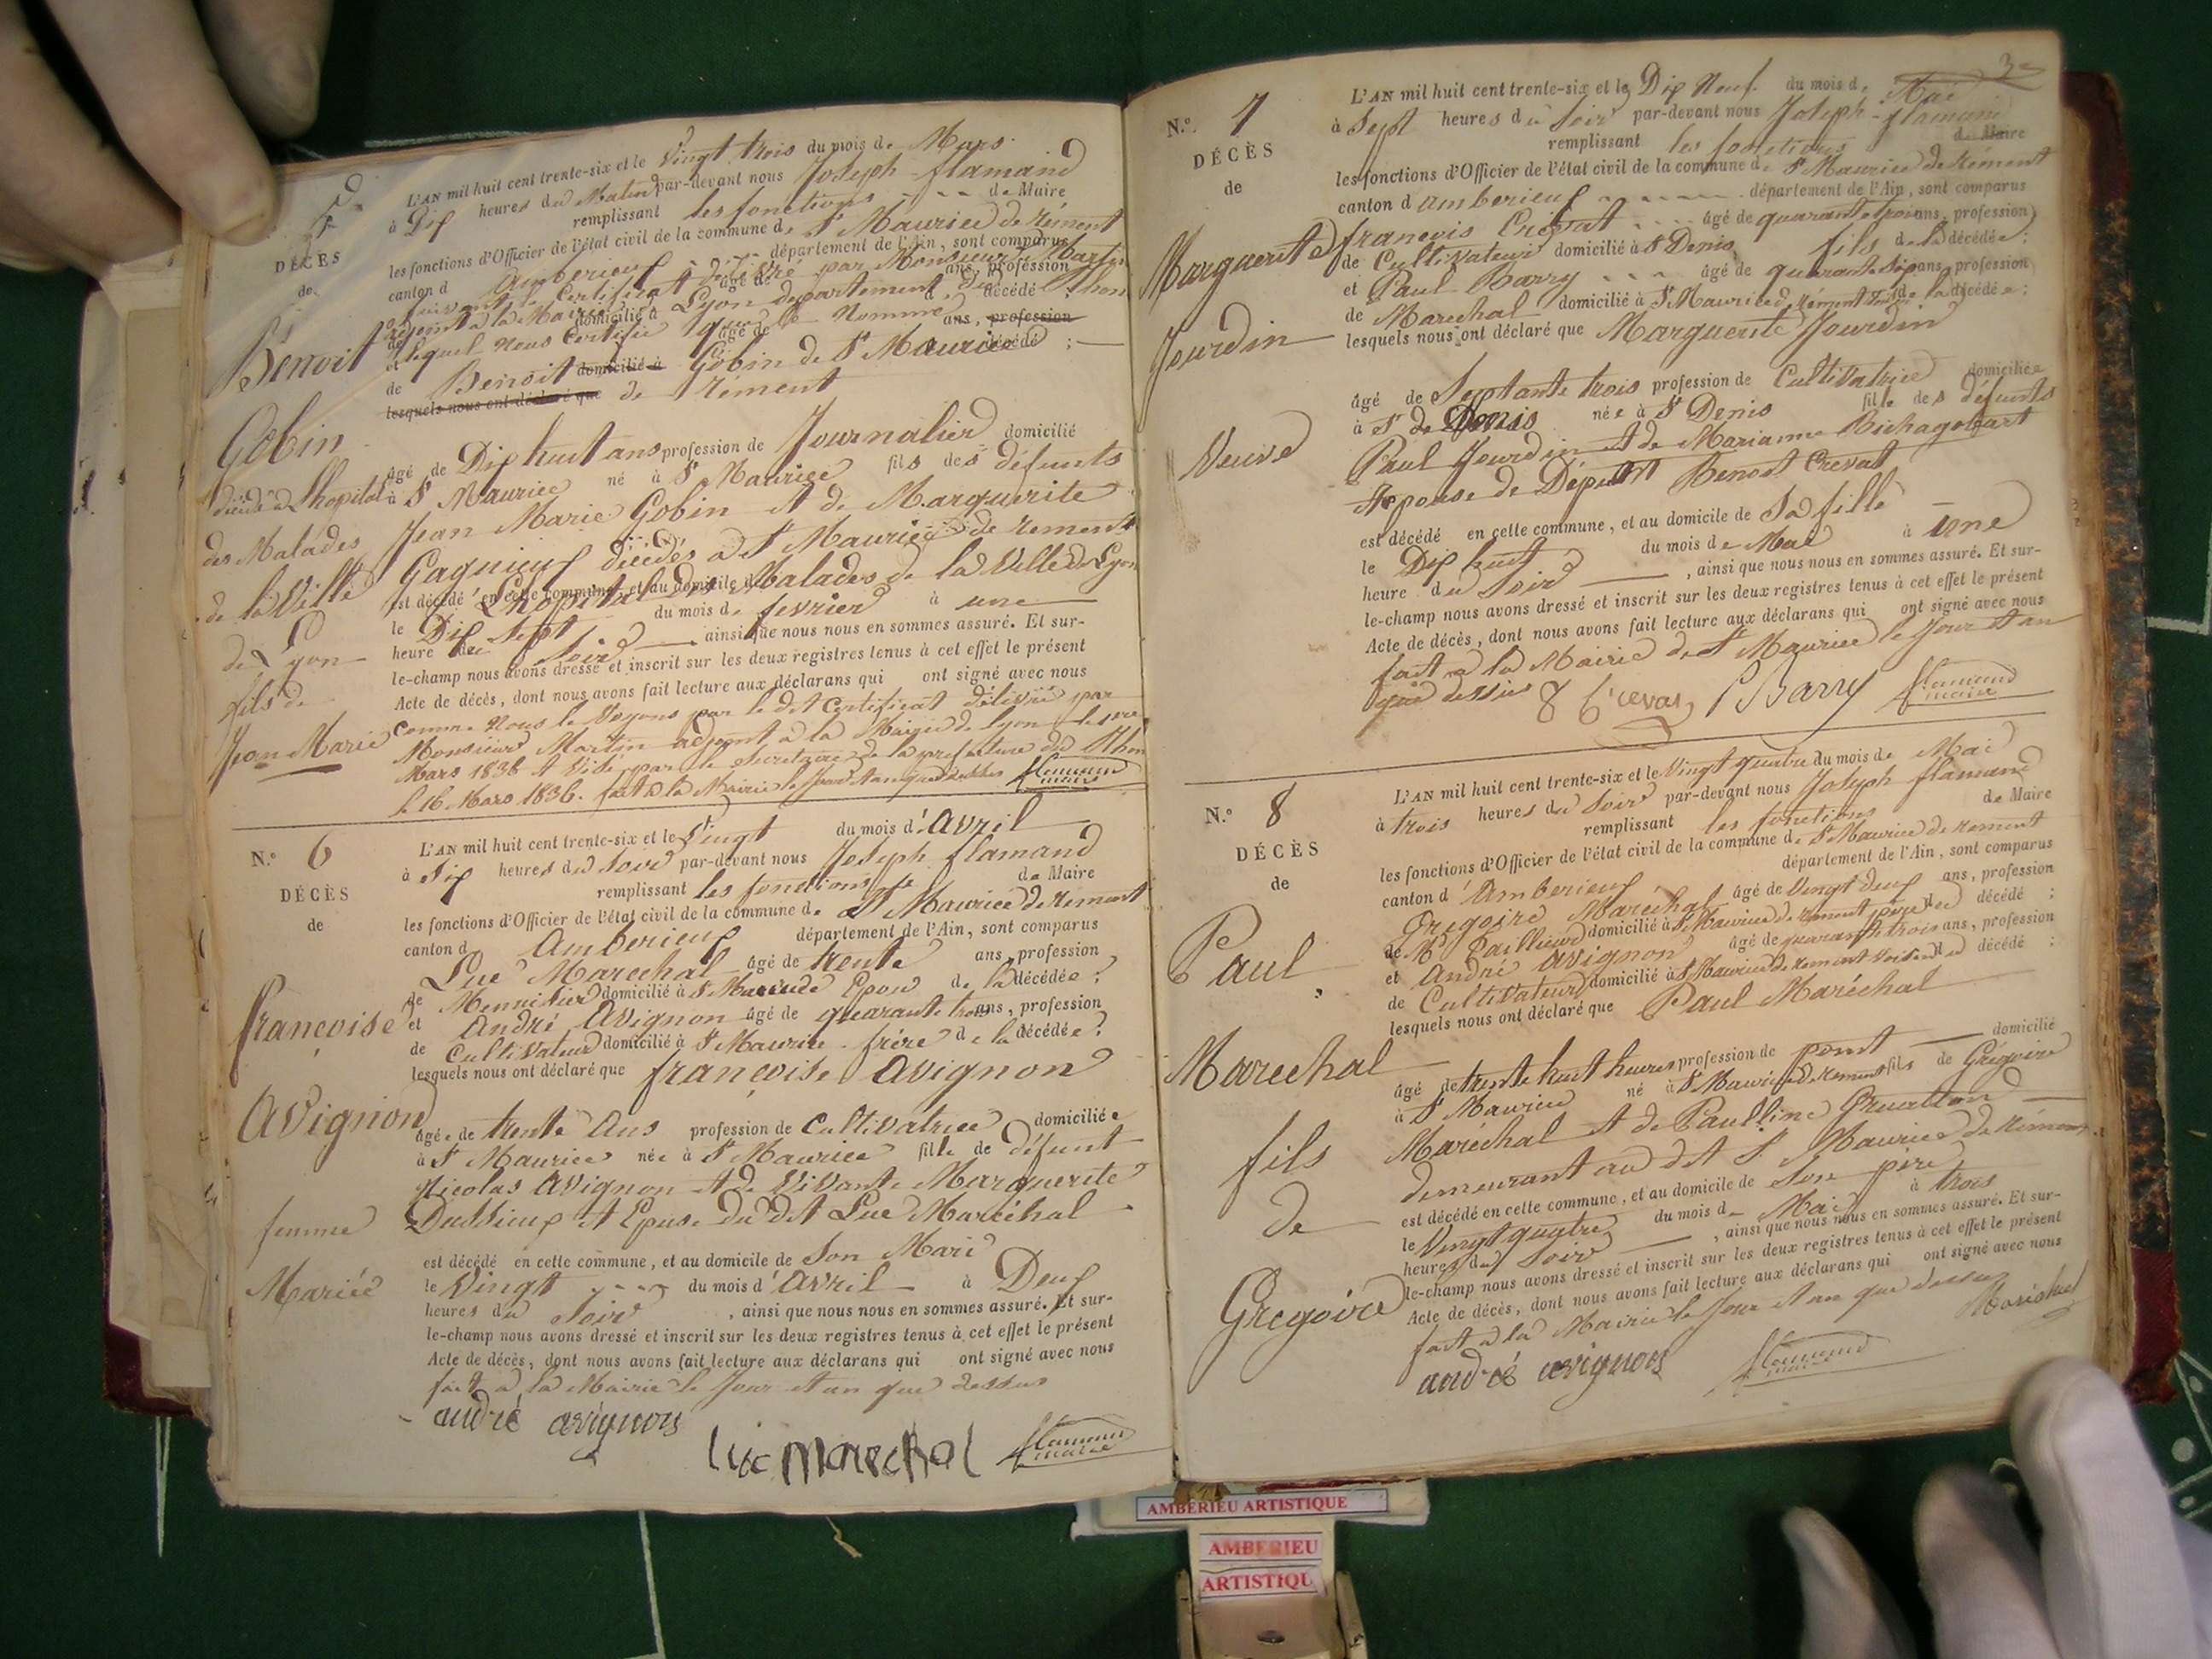 5
DÉCÈS
de
Benoit
Gobin
décédé à Lhopital
des Malades
de la Ville
de Lyon
fils de
Jean Marie
L'AN mil huit cent trente-six et le Vingt trois du mois de Mars
à Dix heures du Matin par-devant nous Joseph flamand
remplissant les fonctions de Maire
les fonctions d'Officier de l'état civil de la commune de St Maurice de rément
canton d Amberieux département de l'Ain, sont comparus
suivant le Certificat délivré par Monsieur Martin âgé de ans, profession
adjoint à la Mairie de Lyon département du Rhone domicilié à décédé ;
et lequel nous Certifie que le Nommé âgé de ans, profession
de Benoit domicilié à Gobin de St Maurice décédé ;
lesquels nous ont déclaré que de rément
âgé de Dix huit ans profession de Journalier domicilié
à St Maurice né à St Maurice fils des défunts
Jean Marie Gobin et de Marguerite
Gagnieux décédés à St Maurice de rement
est décédé en cette commune, et au domicile de Lhopital des Malades de la Ville de Lyon
le Dix Sept du mois de fevrier à une
heure du Soir ainsi que nous nous en sommes assuré. Et sur-
le-champ nous avons dressé et inscrit sur les deux registres tenus à cet effet le présent
Acte de décès, dont nous avons fait lecture aux déclarans qui ont signé avec nous
comme nous le Voyons par le dit Certificat délivré par
Monsieur Martin adjoint à la Mairie de Lyon le
Mars 1836 et Visé par le Secretaire de la prefecture du Rhone
le 16 Mars 1836. fait à la Mairie le Jour et an que dessus flamand
maire
N.º 6
DÉCÈS
de
françoise
Avignon
femme
Mariée
L'AN mil huit cent trente-six et le Vingt du mois d'Avril
à Six heures du Soir par-devant nous Joseph flamand
remplissant les fonctions de Maire
les fonctions d'Officier de l'état civil de la commune de St Maurice de rément
canton d Amberieux département de l'Ain, sont comparus
Luc Marechal âgé de trente ans, profession
de Menuisier domicilié à St Maurice Epoux de la décédée ;
et André Avignon âgé de quarante trois ans, profession
de Cultivateur domicilié à St Maurice frère de la décédée ;
lesquels nous ont déclaré que françoise Avignon
âgée de trente Ans profession de Cultivatrice domiciliée
à St Maurice née à St Maurice fille de défunt
Nicolas Avignon et de Vivante Marguerite
Dussieux et Epouse du dit Luc Maréchal
est décédé en cette commune, et au domicile de Son Mari
le Vingt du mois d'Avril à Deux
heures du Soir, ainsi que nous nous en sommes assuré. Et sur-
le-champ nous avons dressé et inscrit sur les deux registres tenus à cet effet le présent
Acte de décès, dont nous avons fait lecture aux déclarans qui ont signé avec nous
fait à la Mairie le Jour et an que dessus
andré avignon
luc marechal
flamand
maire
N.º 7
DÉCÈS
de
Marguerite
Jourdin
Veuve
L'AN mil huit cent trente-six et le Dix Neuf du mois de Mai
à Sept heures du Soir par-devant nous Joseph flamand
remplissant les fonctions de Maire
les fonctions d'Officier de l'état civil de la commune de St Maurice de rément
canton d'amberieux département de l'Ain, sont comparus
francois Crevat âgé de quarante trois ans, profession
de Cultivateur domicilié à St Denis fils de la décédée ;
et Paul Barry âgé de quarante Six ans, profession
de Marechal domicilié à St Maurice de rément de la décédée ;
lesquels nous ont déclaré que Marguerite Jourdin
âgé de Septante trois profession de Cultivatrice domiciliée
à St de Denis née à St Denis fille des défunts
Paul Jourdin et de Marianne
Epouse de Benoit Crevat
est décédé en cette commune, et au domicile de Sa fille
le Dix huit du mois de Mai à Une
heure du Soir, ainsi que nous nous en sommes assuré. Et sur-
le-champ nous avons dressé et inscrit sur les deux registres tenus à cet effet le présent
Acte de décès, dont nous avons fait lecture aux déclarans qui ont signé avec nous
fait à la Mairie de St Maurice le Jour et an
que dessus Crevat P Barry flamand
maire
N.º 8
DÉCÈS
de
Paul
Marechal
fils
de
Gregoire
L'AN mil huit cent trente-six et le Vingt quatre du mois de Mai
à trois heures du Soir par-devant nous Joseph flamand
remplissant les fonctions de Maire
les fonctions d'Officier de l'état civil de la commune de St Maurice de rement
canton d'Amberieux département de l'Ain, sont comparus
Gregoire Maréchal âgé de Vingt deux ans, profession
de domicilié à St Maurice de rement père du décédé ;
et André Avignon âgé de quarante trois ans, profession
de Cultivateur domicilié à St Maurice de rement Voisin du décédé ;
lesquels nous ont déclaré que Paul Maréchal
âgé de trente huit heures profession de point domicilié
à St Maurice né à St Maurice de rement fils de Grégoire
Maréchal et de Paulline
demeurant au dit St Maurice de rément
est décédé en cette commune, et au domicile de Son père
le Vingt quatre du mois de Mai à trois
heures du Soir, ainsi que nous nous en sommes assuré. Et sur-
le-champ nous avons dressé et inscrit sur les deux registres tenus à cet effet le présent
Acte de décès, dont nous avons fait lecture aux déclarans qui ont signé avec nous
fait à la Mairie le Jour et an que dessus
andré avignon
flamand
maire
Maréchal
AMBERIEU ARTISTIQUE
AMBERIEU
ARTISTIQU